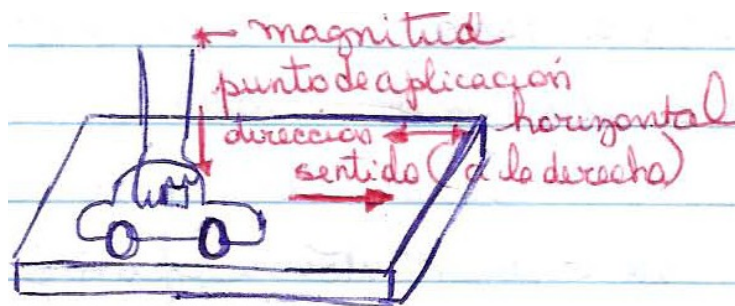 magnitud
punto de aplicación
dirección horizontal
sentido (a la derecha)